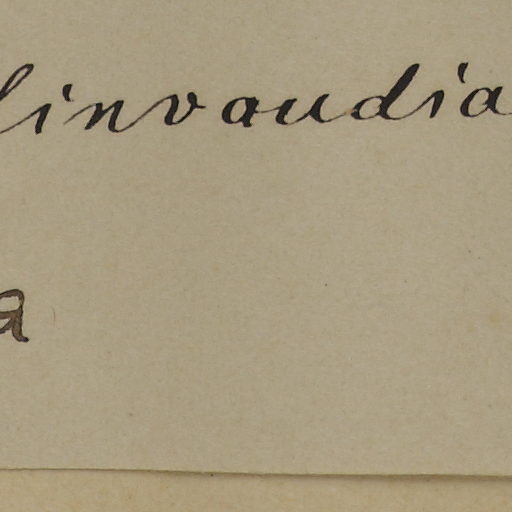 linvaudia
a